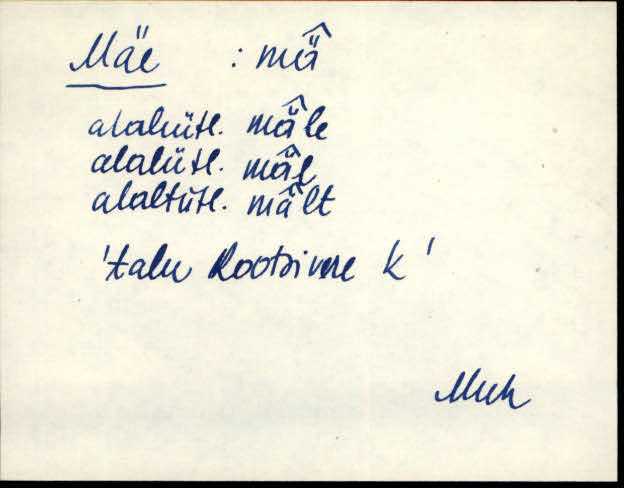 Mäe : mä̂
alaleütl. mä̂le
alalütl. mä̂l
alaltütl. mä̂lt
'talu Rootsivere k'
Muh